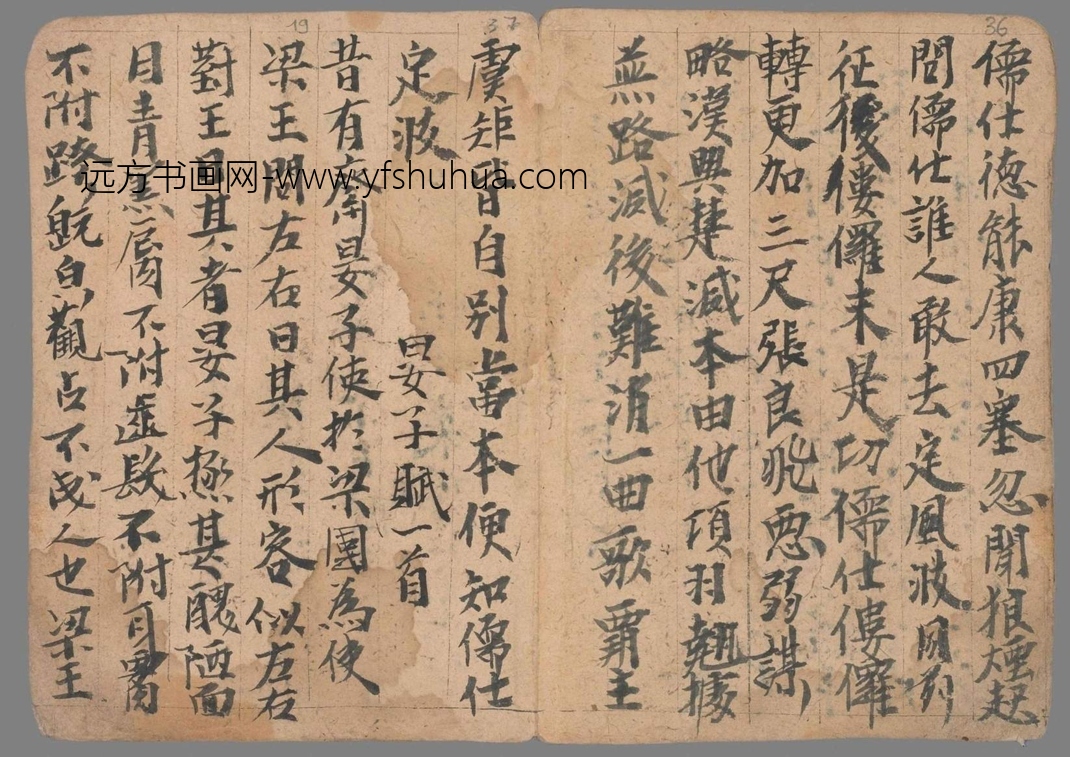 36
儒仕德能康四塞忽聞狼煙起
問儒仕誰人敢去定風波
征後僂儸未是功儒仕僂儸
轉更加三尺張良飛惡弱謀
略漢興楚滅本由他項羽翹據
無路滅後難消一曲歌霸主
37
虞姬皆自别當本便知儒仕
定波 晏子賦一首
19
昔有齊晏子使於梁國為使
梁王問左右曰其人形容似左右
對王曰其者晏子極其醜陋面
目青黑脣不附齒髮不附耳
不附踝既白觀占不成人也梁王
远方书画网-www.yfshuhua.com